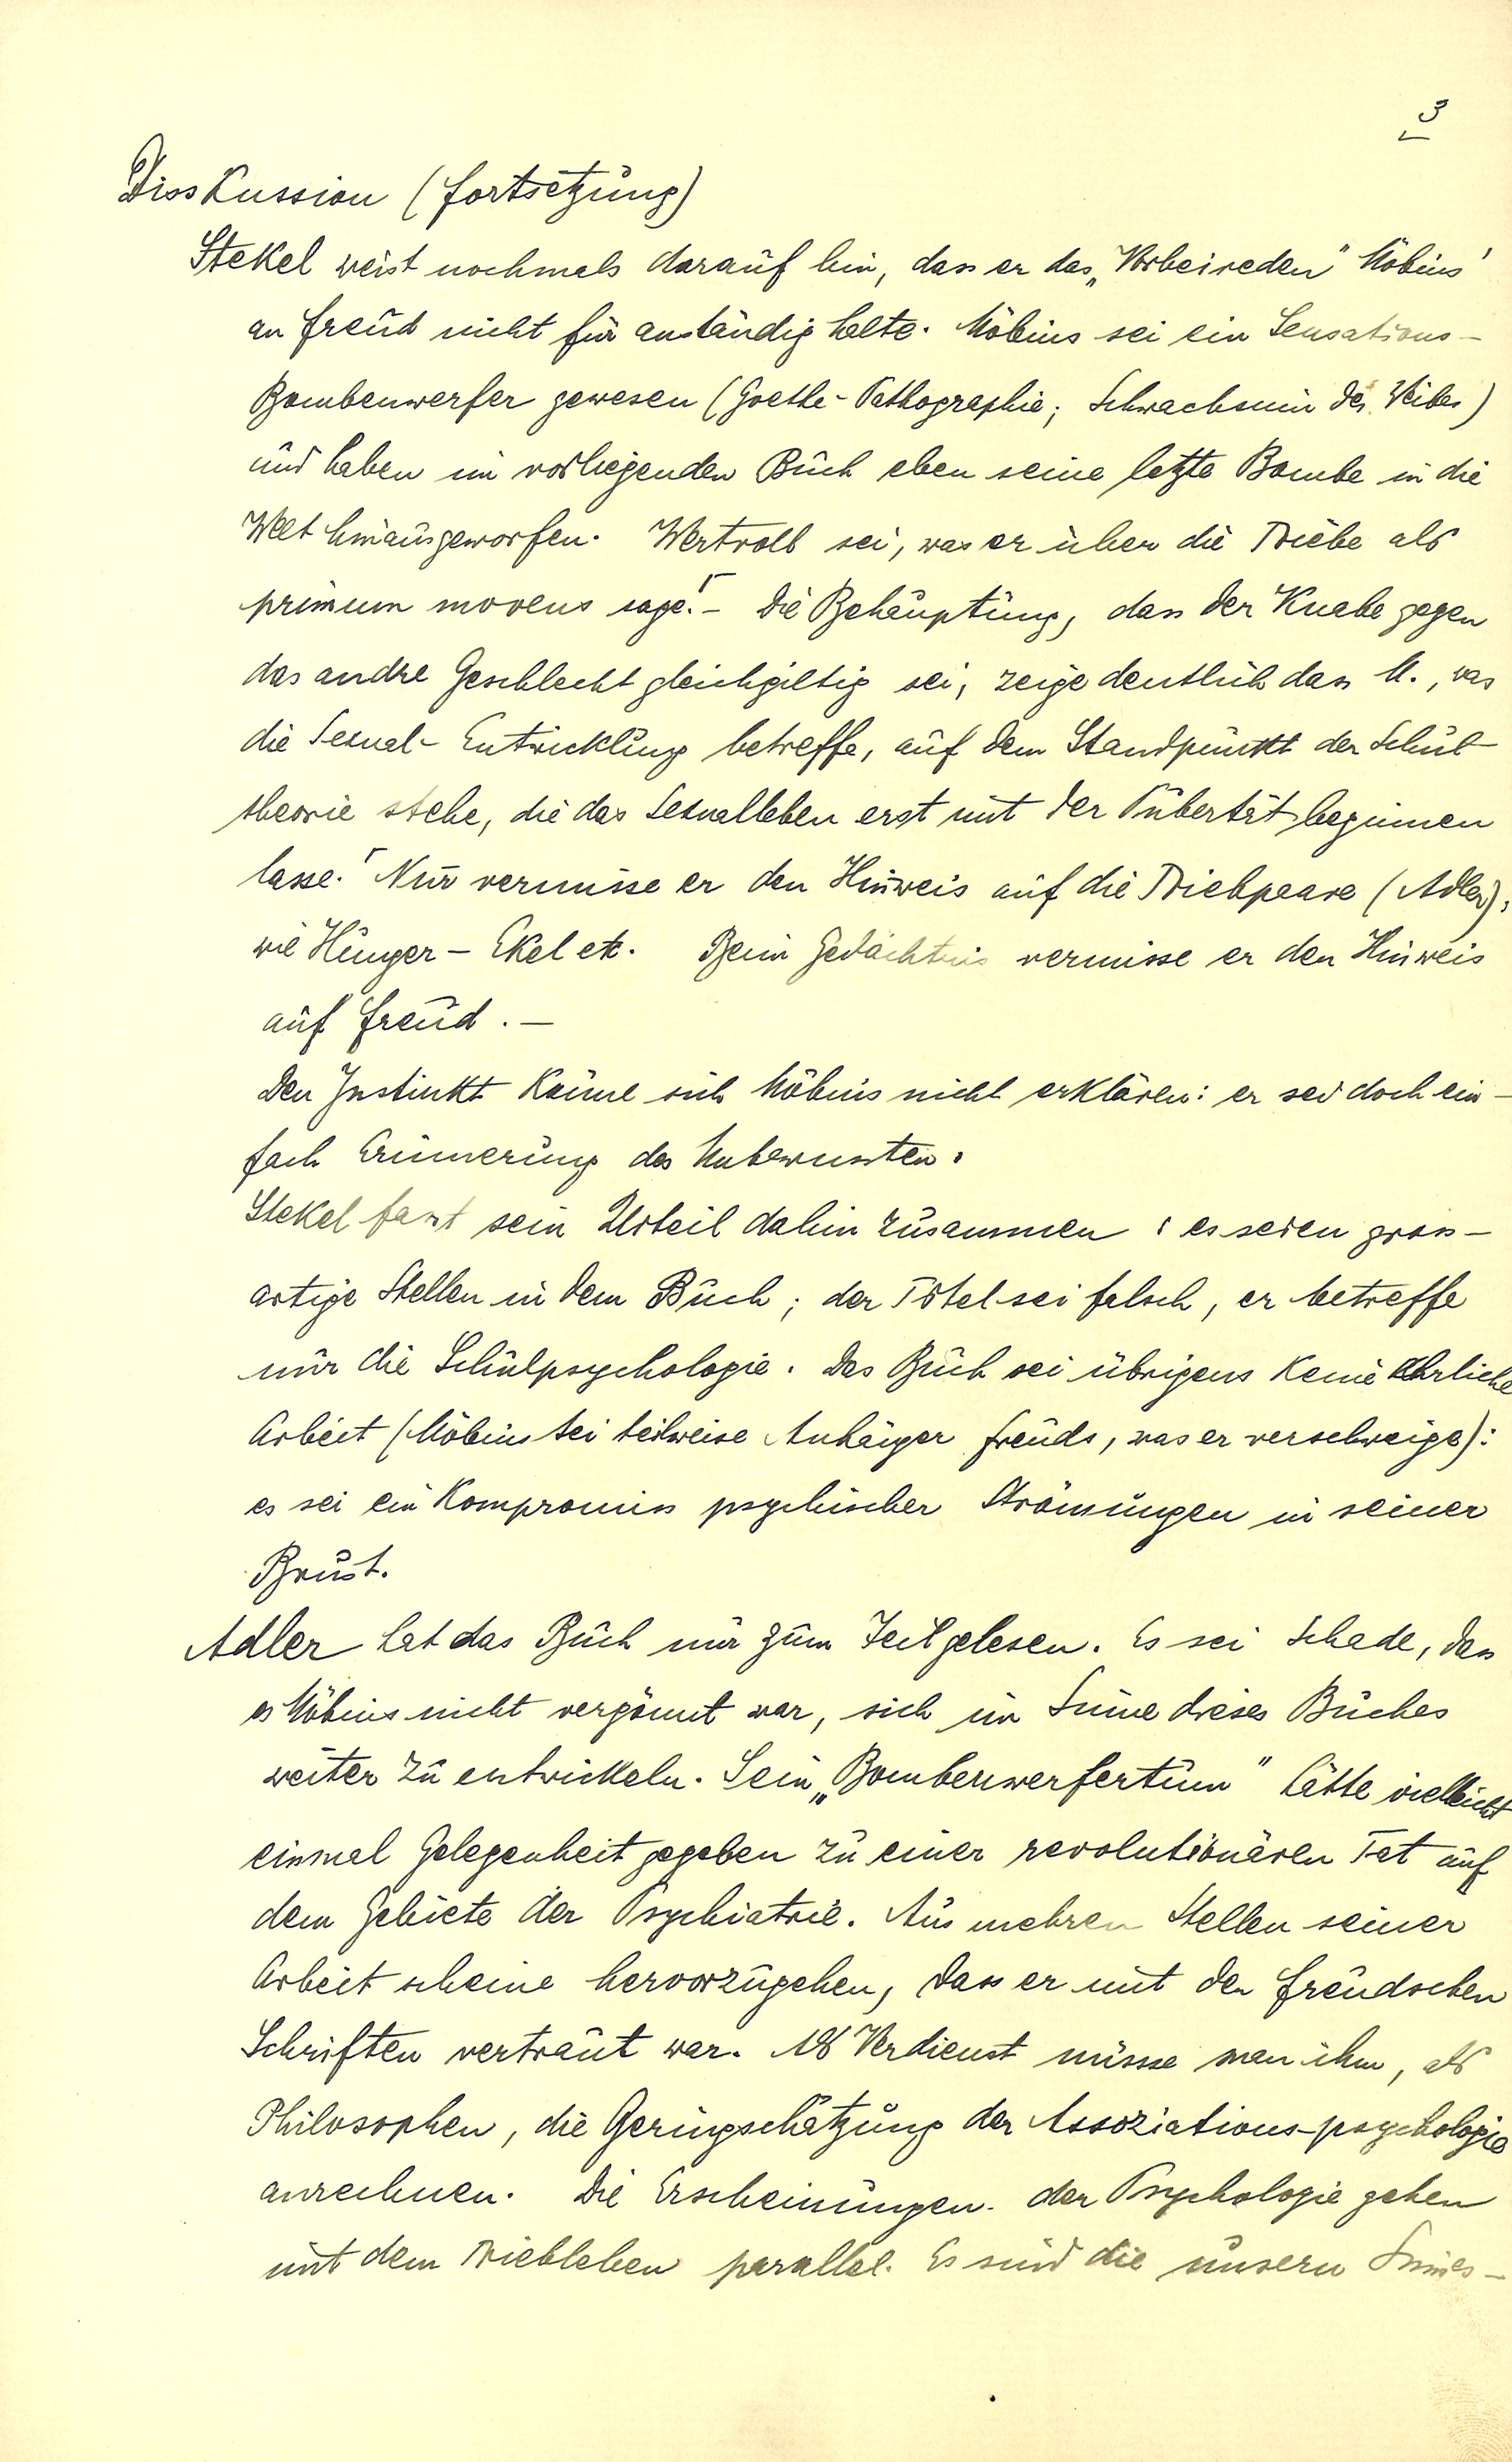 3
Disskussion (Fortsetzung)
Stekel weist nochmals darauf hin, dass er das „Vorbeireden" Möbius'
an Freud nicht für anständig halte. Möbius sei ein Sensations-
Bombenwerfer gewesen (Goethe-Pathographie; Schwachsinn des Weibes)
und haben im vorliegenden Buch eben seine letzte Bombe in die
Welt hinausgeworfen. Wertvoll sei, was er über die Triebe als
primum movens sage. - Die Behauptung, dass der Knabe gegen
das andre Geschlecht gleichgiltig sei, zeige deutlich dass M., was
die Sexual-Entwicklung betreffe, auf dem Standpunkt der Schul-
theorie stehe, die das Sexualleben erst mit der Pubertät beginnen
lasse. Nur vermisse er den Hinweis auf die Triebpaare (Adler),
wie Hunger - Ekel etc. Beim Gedächtnis vermisse er den Hinweis
auf Freud. -
Den Instinkt könne sich Möbius nicht erklären: er sei doch ein-
fach Erinnerung des Unbewussten.
Stekel fasst sein Urteil dahin zusammen: es seien gross-
artige Stellen in dem Buch; der Titel sei falsch, er betreffe
nur die Schulpsychologie. Das Buch sei übrigens keine ehrliche
Arbeit (Möbius sei teilweise Anhänger Freuds, was er verschweige):
es sei ein Kompromiss psychischer Strömungen in seiner
Brust.
Adler hat das Buch nur zum Teil gelesen. Es sei schade, dass
es Möbius nicht vergönnt war, sich im Sinne dieses Buches
weiter zu entwickeln. Sein „Bombenwerfertum" hätte vielleicht
einmal Gelegenheit gegeben zu einer revolutionären Tat auf
dem Gebiete der Psychiatrie. Aus mehren Stellen seiner
Arbeit scheine hervorzugehen, dass er mit den Freudschen
Schriften vertraut war. Als Verdienst müsse man ihm, als
Philosophen, die Geringschätzung der Assoziations-psychologie
anrechnen. Die Erscheinungen der Psychologie gehen
mit dem Triebleben parallel. Es sind die unsern Sinnes-